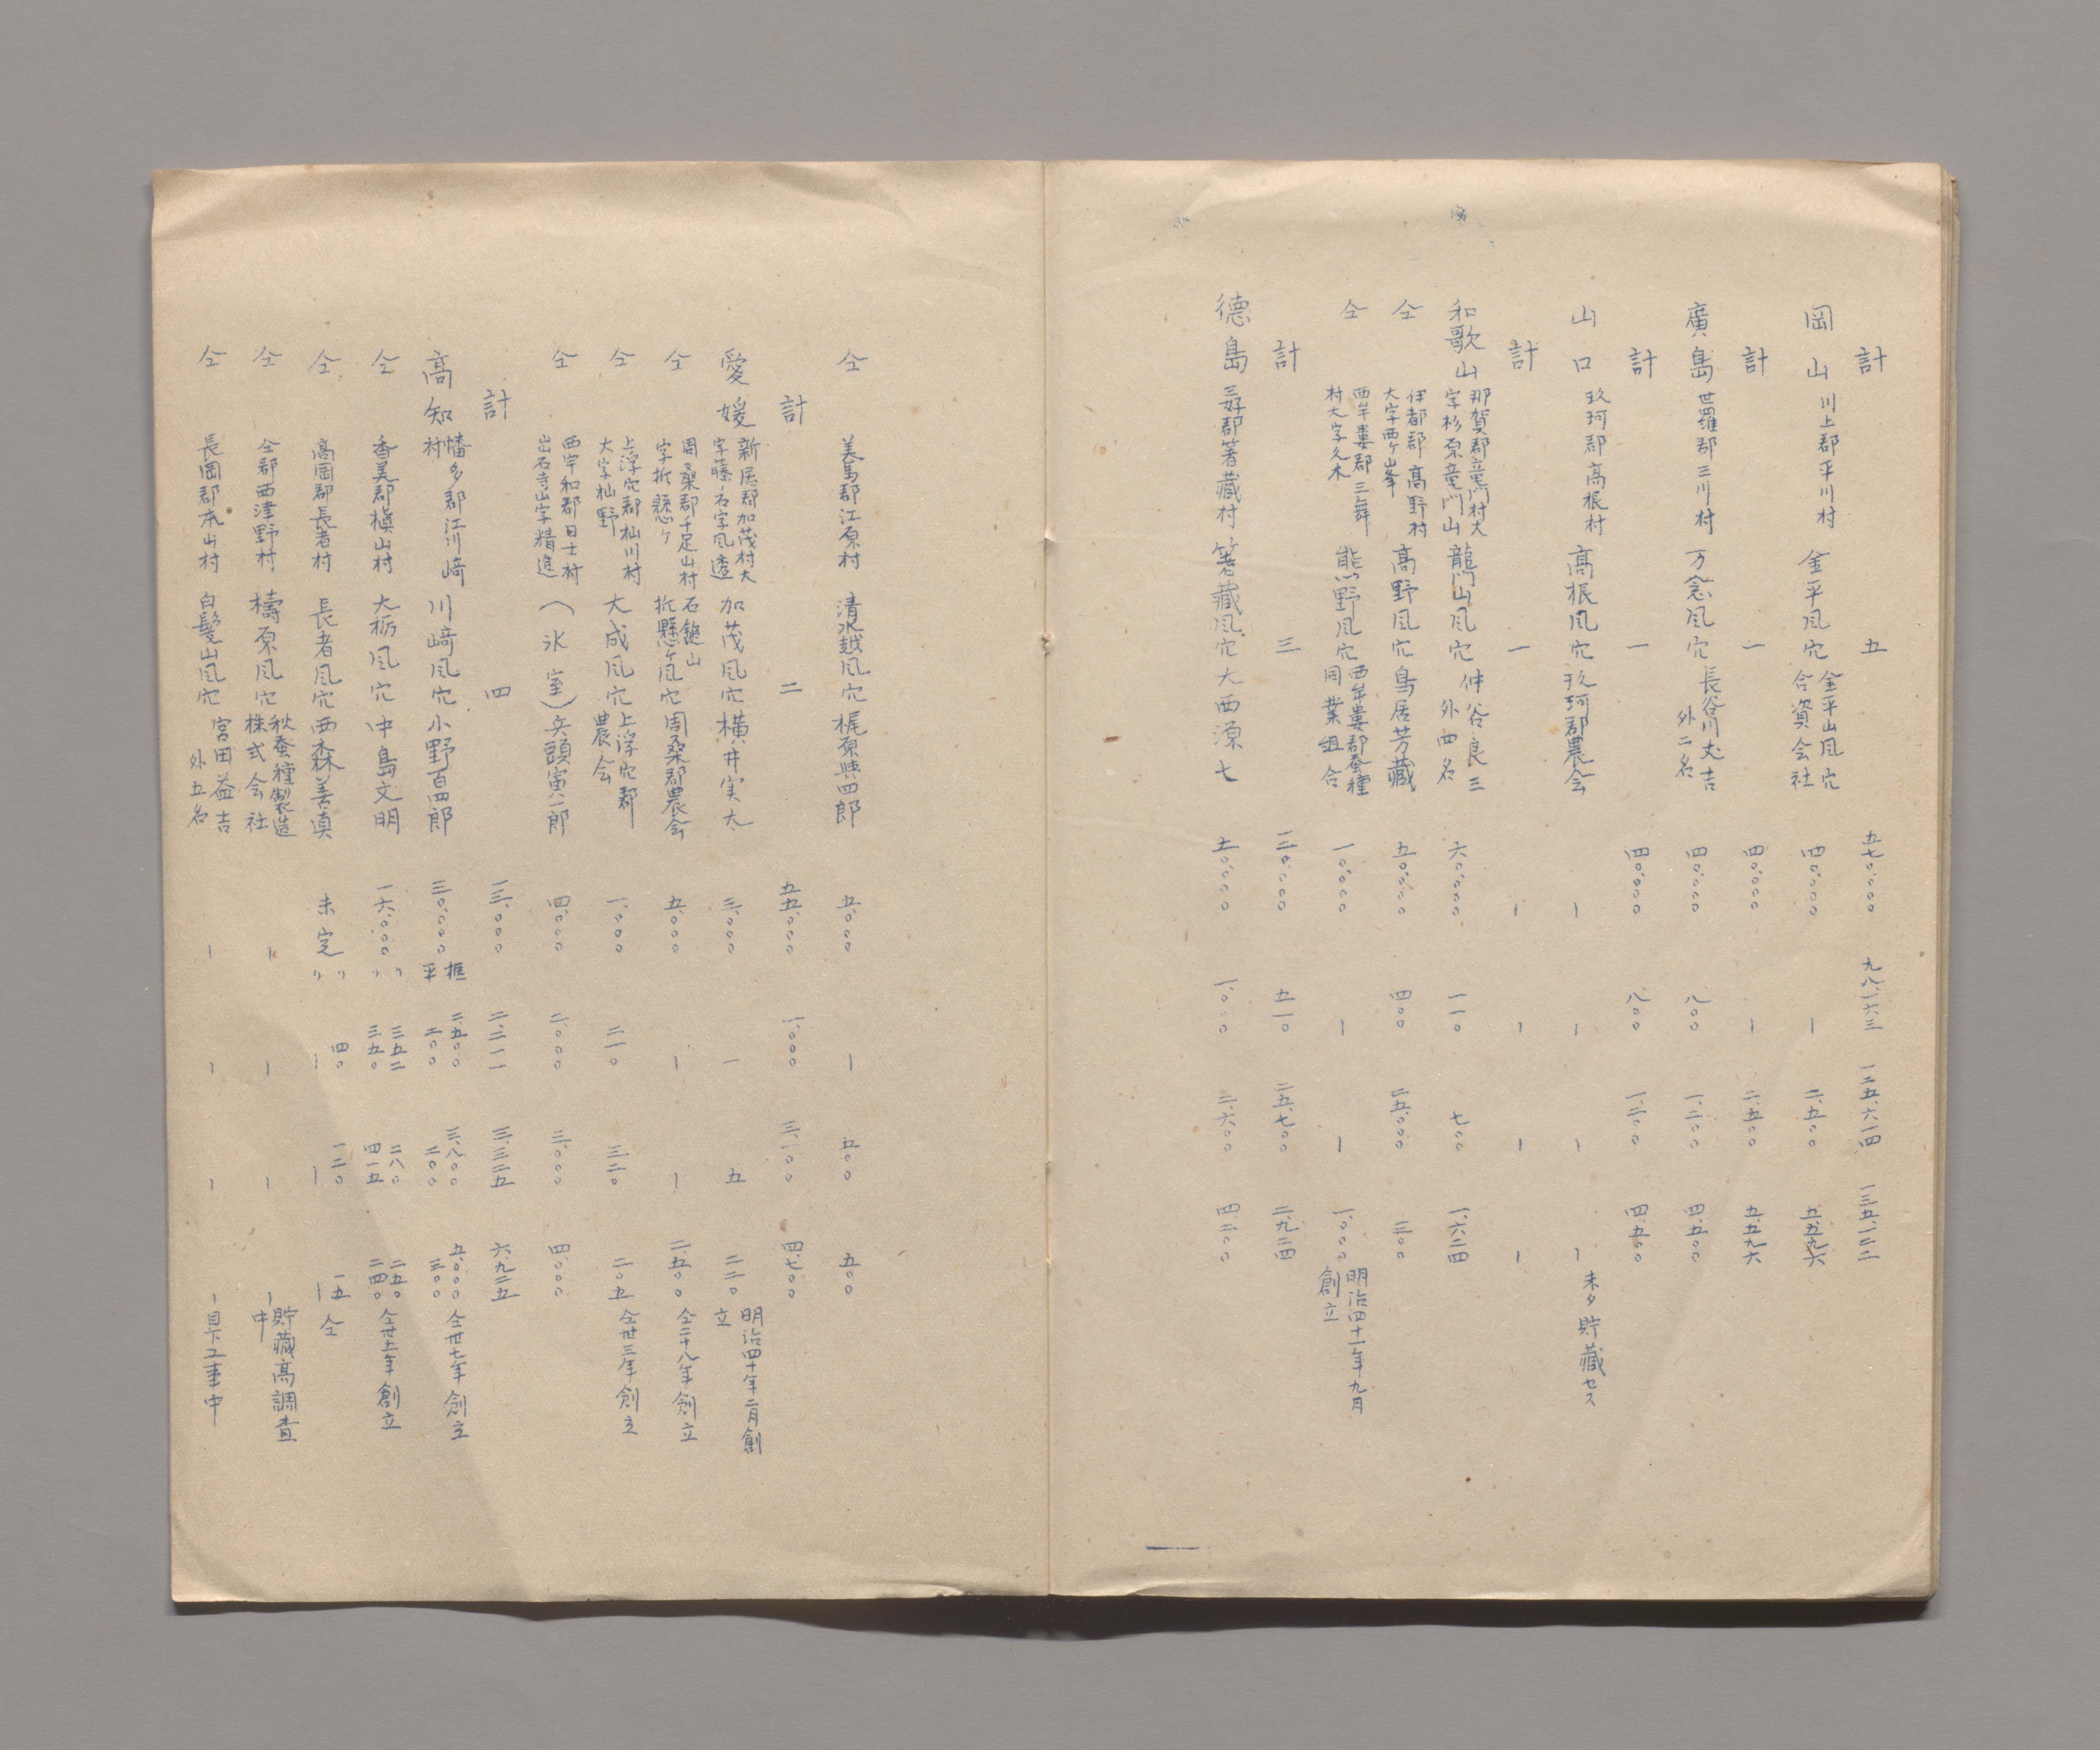 計 五 五七〇、〇〇〇 九八、一六三 一二五、六一四 一三五、一二二
岡山 川上郡平川村 金平風穴 金平山風穴合資会社 四〇、〇〇〇 ー 二、五〇〇 五、五九六
計 一 四〇、〇〇〇 ー 二、五〇〇 五、五九六
廣島 世羅郡三川村 万念風穴 長谷川丈吉外二名 四〇、〇〇〇 八〇〇 一、二〇〇 四、五〇〇
計 一 四〇、〇〇〇 八〇〇 一、二〇〇 四、五〇〇
山口 玖珂郡高根村 高根風穴 玖珂郡農会 ー ー ー ー 未タ貯藏セス
計 一 ー ー ー ー
和歌山 那賀郡竜門村大字杉原竜門山 龍門山風穴 仲谷良三外四名 六〇、〇〇〇 一一〇 七〇〇 一、六二四
仝 伊都郡高野村大字西ケ峯 高野風穴 鳥居芳藏 五〇、〇〇〇 四〇〇 二五、〇〇〇 三〇〇
仝 西牟婁郡三舞村大字久木 熊野風穴 西牟婁郡蚕種同業組合 一〇、〇〇〇 ー ー 一、〇〇〇 明治四十一年九月創立
計 三 一二〇、〇〇〇 五一〇 二五、七〇〇 二、九二四
德島 三好郡箸藏村 箸藏風穴 大西源七 五〇、〇〇〇 一、〇〇〇 二、六〇〇 四、二〇〇
仝 美馬郡江原村 清水越風穴 梶原與四郎 五、〇〇〇 ー 五〇〇 五〇〇
計 二 五五、〇〇〇 一、〇〇〇 三、一〇〇 四、七〇〇
愛媛 新居郡加茂村大字藤ノ石字風透 加茂風穴 横井実太 三、〇〇〇 一 五 二二〇 明治四十年二月創立
仝 周桑郡千足山村字折懸ケ 石鎚山折懸ケ風穴 周桑郡農会 五、〇〇〇 ー ー 二、五〇〇 仝二十八年創立
仝 上浮穴郡杣川村大字杣野 大成風穴 上浮穴郡農会 一、〇〇〇 二一〇 三二〇 二〇五 仝卅三年創立
仝 西宇和郡日土村出石寺山字精進 （氷室） 兵頭寅一郎 四、〇〇〇 二、〇〇〇 三、〇〇〇 四、〇〇〇
計 四 一三、〇〇〇 二、二一一 三、三二五 六、九二五
高知 幡多郡江川﨑村 川﨑風穴 小野百四郎 三〇、〇〇〇 框 二、五〇〇 三、八〇〇 五、〇〇〇 平 二〇〇 二〇〇 三〇〇 仝卅七年創立
仝 香美郡槇山村 大栃風穴 中島文明 一六、〇〇〇 〃 三五二 二八〇 二五〇 〃 三五〇 四一五 二四〇 仝卅五年創立
仝 高岡郡長者村 長者風穴 西森善眞 未定 〃 四〇 一二〇 一五 〃 ー ー ー 仝
仝 仝郡西津野村 檮原風穴 秋蚕種製造株式会社 ー ー ー ー 貯藏高調査中
仝 長岡郡本山村 白髮山風穴 宮田益吉外五名 ー ー ー ー 目下工事中